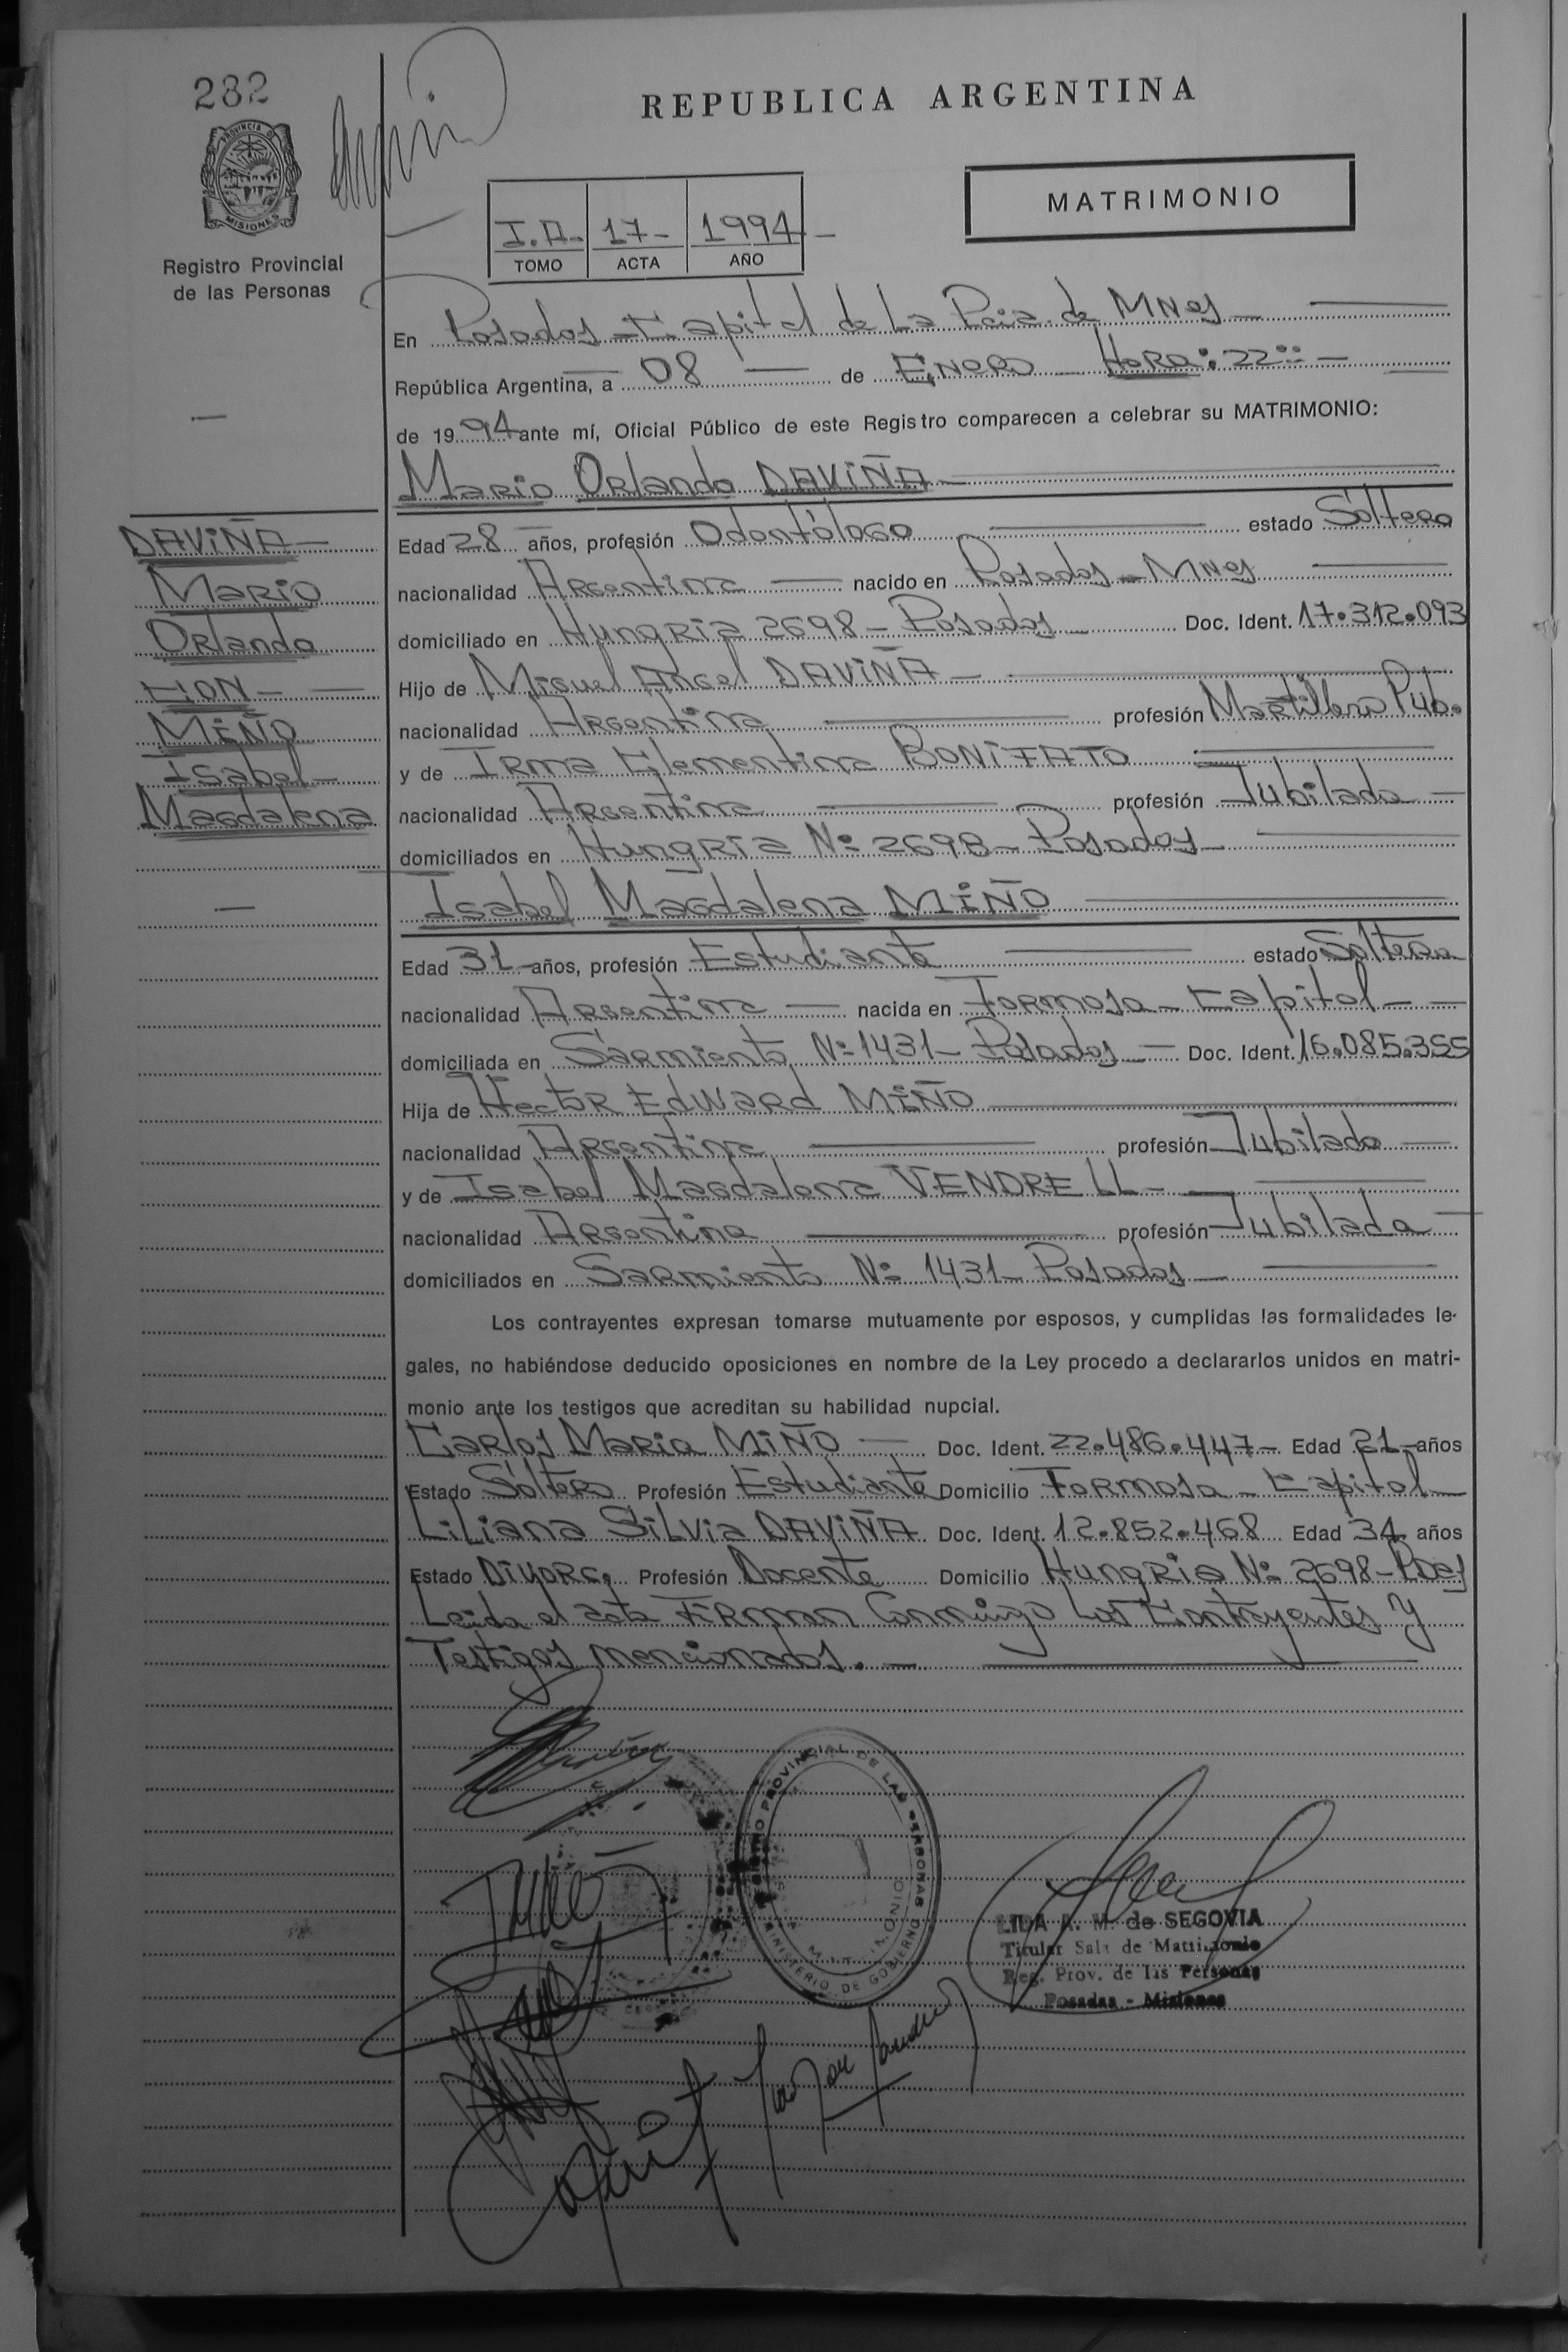 282
PROVINCIA DE
MISIONES
Registro Provincial
de las Personas
REPUBLICA ARGENTINA
MATRIMONIO
I.A. 17- 1994-
TOMO ACTA AÑO
En Posadas - Capital de La Pcia. de Mnes
República Argentina, a 08 de Enero Hora: 22:00
de 1994 ante mí, Oficial Público de este Registro comparecen a celebrar su MATRIMONIO:
Mario Orlando DAVIÑA
DAVIÑA
Mario
Orlando
CON
MIÑO
Isabel
Magdalena
Edad 28 años, profesión Odontólogo estado Soltero
nacionalidad Argentina nacido en Posadas - Mnes
domiciliado en Hungria 2698 - Posadas Doc. Ident. 17.312.093
Hijo de Miguel Angel DAVIÑA
nacionalidad Argentina profesión Martillero Pub.
y de Irma Clementina BONIFATO
nacionalidad Argentina profesión Jubilada
domiciliados en Hungria Nº 2698 - Posadas
Isabel Magdalena MIÑO
Edad 31 años, profesión Estudiante estado Soltera
nacionalidad Argentina nacida en Formosa - Capital
domiciliada en Sarmiento Nº 1431 - Posadas Doc. Ident. 16.085.355
Hija de Hector Edward MIÑO
nacionalidad Argentina profesión Jubilado
y de Isabel Magdalena VENDRELL
nacionalidad Argentina profesión Jubilada
domiciliados en Sarmiento Nº 1431 - Posadas
Los contrayentes expresan tomarse mutuamente por esposos, y cumplidas las formalidades le-
gales, no habiéndose deducido oposiciones en nombre de la Ley procedo a declararlos unidos en matri-
monio ante los testigos que acreditan su habilidad nupcial.
Carlos Maria MIÑO Doc. Ident. 22.486.447 Edad 21 años
Estado Soltero Profesión Estudiante Domicilio Formosa - Capital
Liliana Silvia DAVIÑA Doc. Ident. 12.852.468 Edad 34 años
Estado Divorc. Profesión Docente Domicilio Hungria Nº 2698 - Pdas
Leida el acta Firman Conmigo Los Contrayentes y
Testigos mencionados.
REGISTRO PROVINCIAL DE LAS PERSONAS
MINISTERIO DE GOBIERNO
MATRIMONIO
LIDA A. M. de SEGOVIA
Titular Sala de Matrimonio
Reg. Prov. de las Personas
Posadas - Misiones